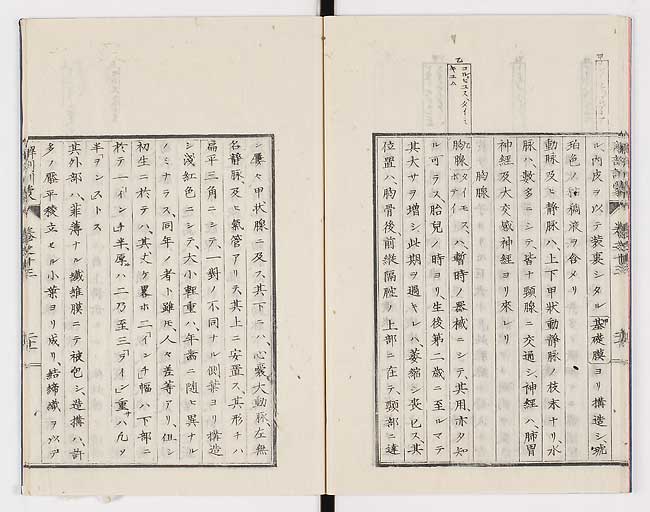 ル内皮ヲ以テ装裏シタル基礎膜ヨリ構造シ琥
珀色ノ稀液ヲ含メリ
動脉及ヒ静脉ハ上下甲状動静脉ノ枝末ナリ水
脉ハ数多ニシテ皆ナ頸腺ニ交通シ神経ハ肺胃
神経及大交感神経ヨリ來レリ
胸腺
乙
コルピユス、タイミ
キユム
胸腺タイモス、ボデイハ暫時ノ器械ニシテ其用亦タ知
ル可ラス胎兒ノ時ヨリ生後第二歳ニ至ルマテ
其大サヲ増シ此期ヲ過キレハ萎縮シ丧亡ス其
位置ハ胸骨後前縦隔腔ノ上部ニ在テ頸部ニ達
シ屡々甲状腺ニ及ス其下ニハ心嚢大動脉左無
名静脉及ヒ氣管アリテ其上ニ安置ス其形チハ
扁平三角ニシテ一對ノ不同ナル側葉ヨリ構造
シ淺紅色ニシテ大小軽重ハ年齒ニ随ヒ異ナル
ノミナラス同年ノ者ト雖モ人々差等アリ但シ
初生ニ於テハ其丈ケ畧ホ二インチ幅ハ下部ニ
於テ一インチ半厚ハ二乃至三ライン重サハ凡ソ
半ヲンストス
其外部ハ菲薄ナル纖維膜ニテ被包シ造搆ハ許
多ノ扁平積立セル小葉ヨリ成リ結締織ヲ以テ